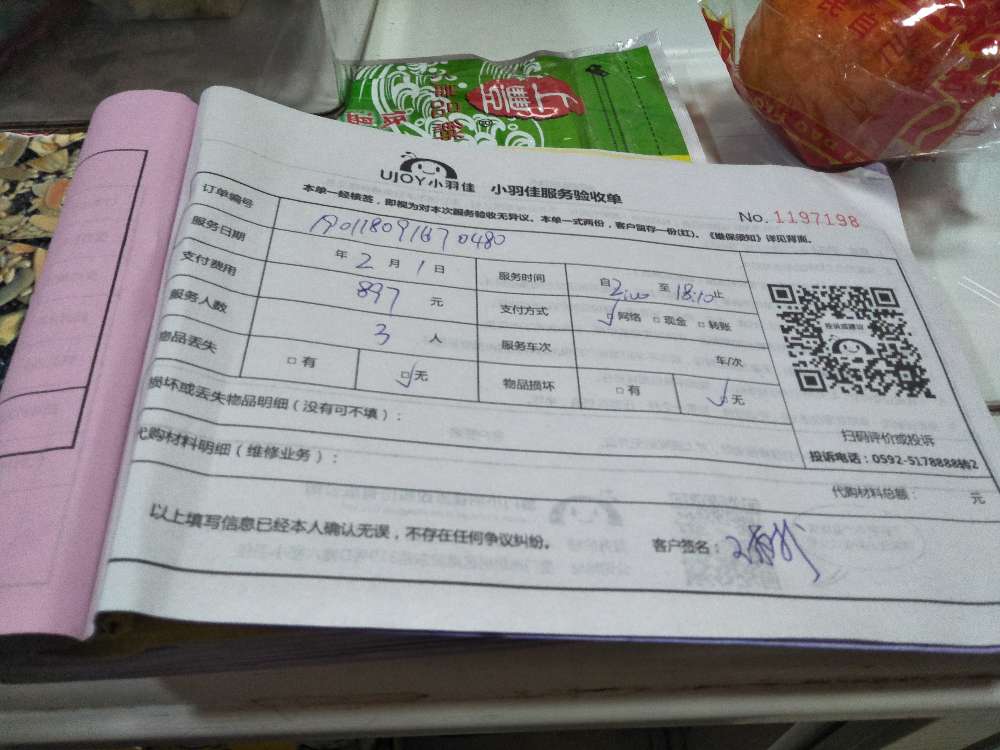 UJOY小羽佳 小羽佳服务验收单
No. 1197198
本单一经横签,即视为对本次服务验收无异议。本单一式两份,客户留存一份(红)。《维保须知》详见背面。
订单编号
服务日期 年 2 月 1 日 服务时间 自 至 18:10 止
支付费用 897 元 支付方式 网络 □ 现金 □ 转账
服务人数 3 人 服务车次 车/次
物品丢失 □ 有 □ 无 物品损坏 □ 有 □ 无
损坏或丢失物品明细(没有可不填):
代购材料明细(维修业务):
投诉或建议
扫码评价或投诉
投诉电话:0592-5178888转2
代购材料总额: 元
以上填写信息已经本人确认无误,不存在任何争议纠纷。 客户签名: